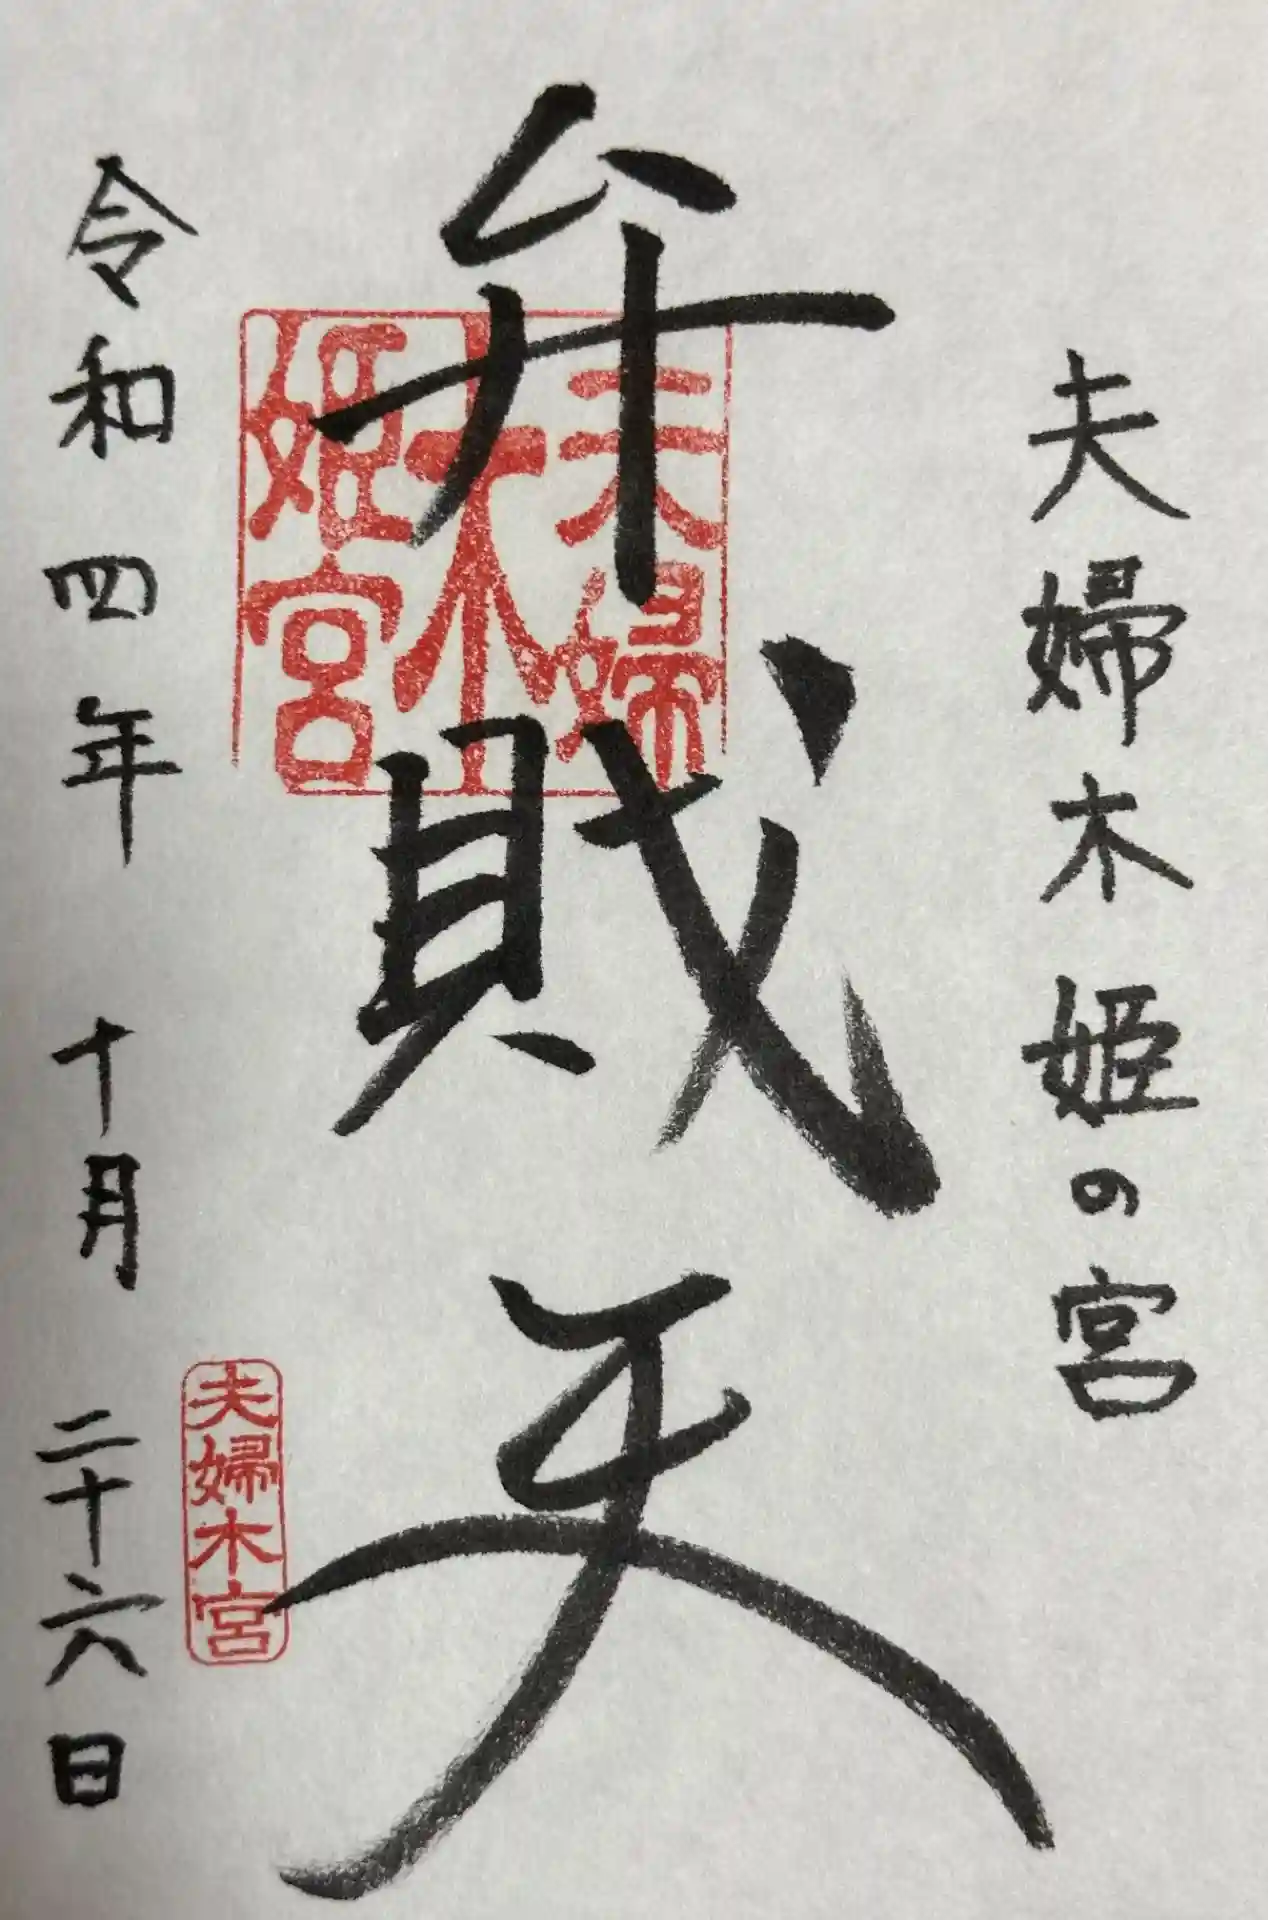 夫婦木姫の宮
弁財天
夫婦
大木
姫宮
夫婦木宮
令和四年十月二十六日